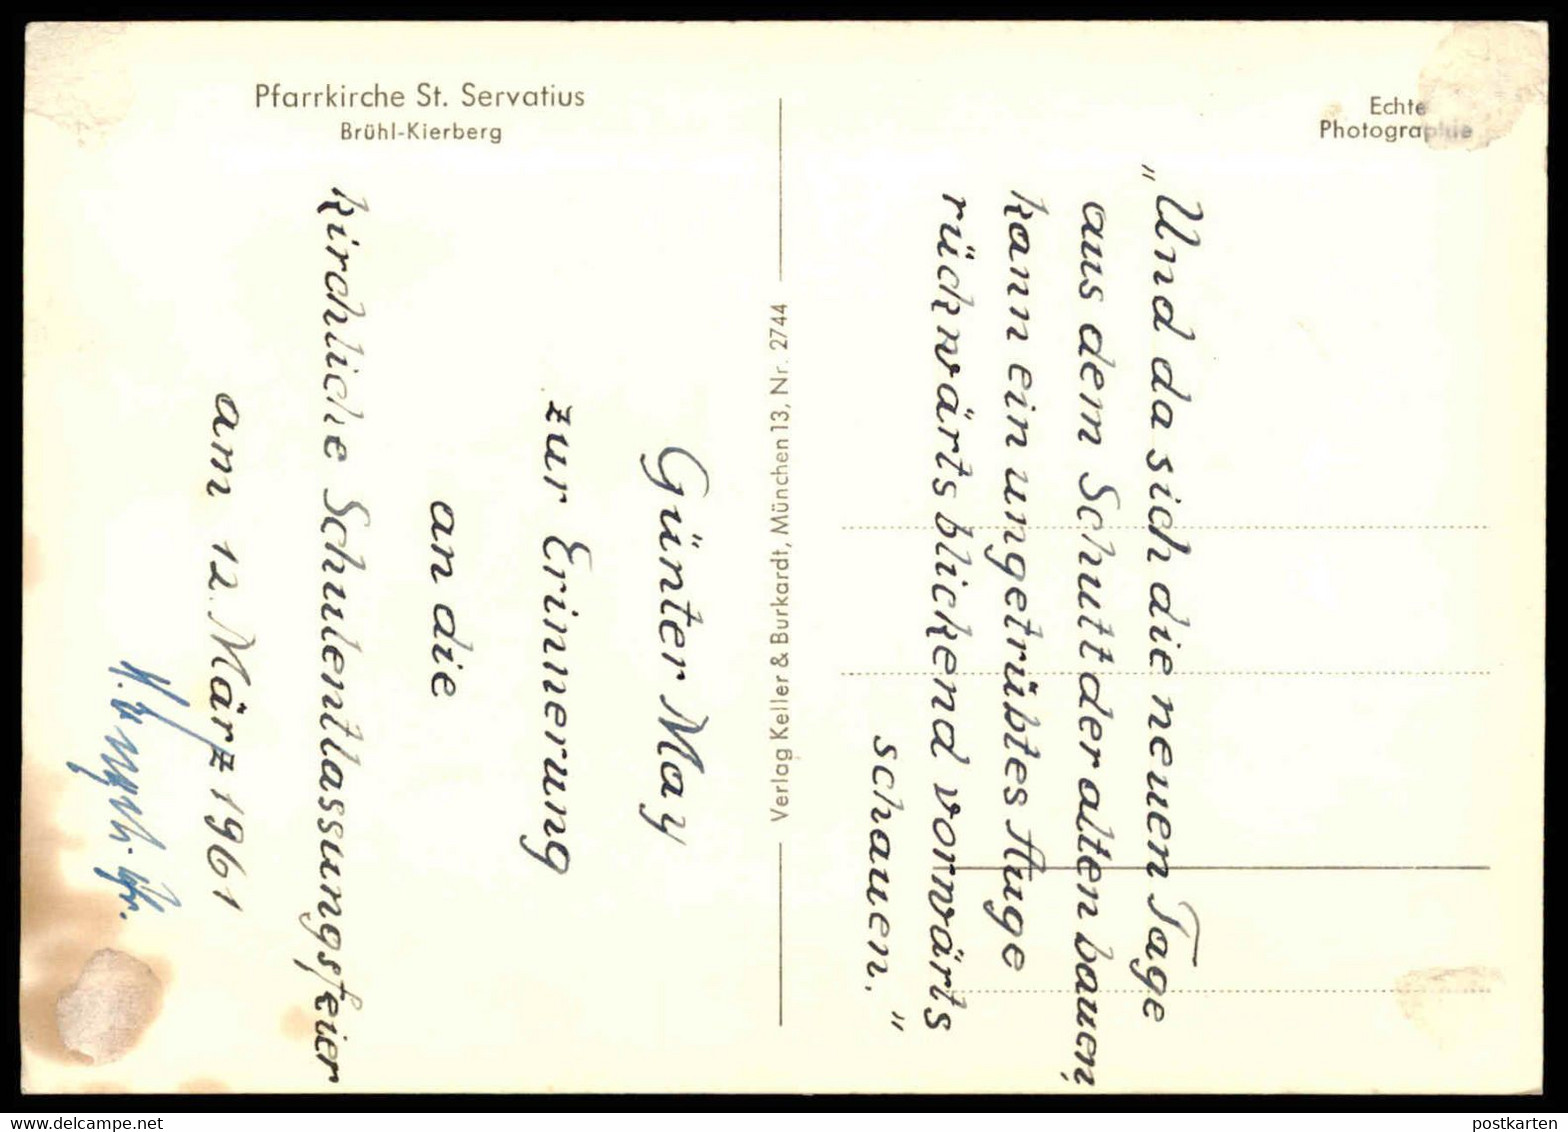 Pfarrkirche St. Servatius
Brühl-Kierberg
Echte
Photographie
Verlag Keller & Burkardt, München 13, Nr. 2744
„Und da sich die neuen Tage
aus dem Schutt der alten bauen,
kann ein ungetrübtes Auge
rückwärts blickend vorwärts
schauen."
Günter May
zur Erinnerung
an die
kirchliche Schulentlassungsfeier
am 12. März 1961
postkarten